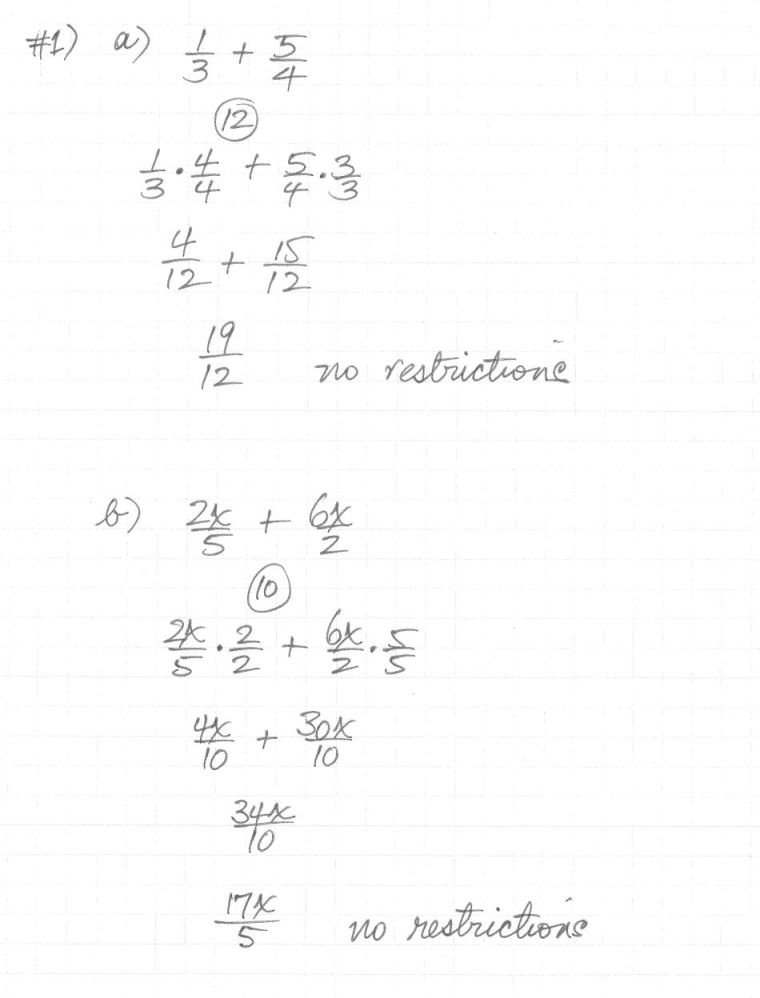 #1) a) 1/3 + 5/4
12
1/3 · 4/4 + 5/4 · 3/3
4/12 + 15/12
19/12 no restrictions
b) 2x/5 + 6x/2
10
2x/5 · 2/2 + 6x/2 · 5/5
4x/10 + 30x/10
34x/10
17x/5 no restrictions